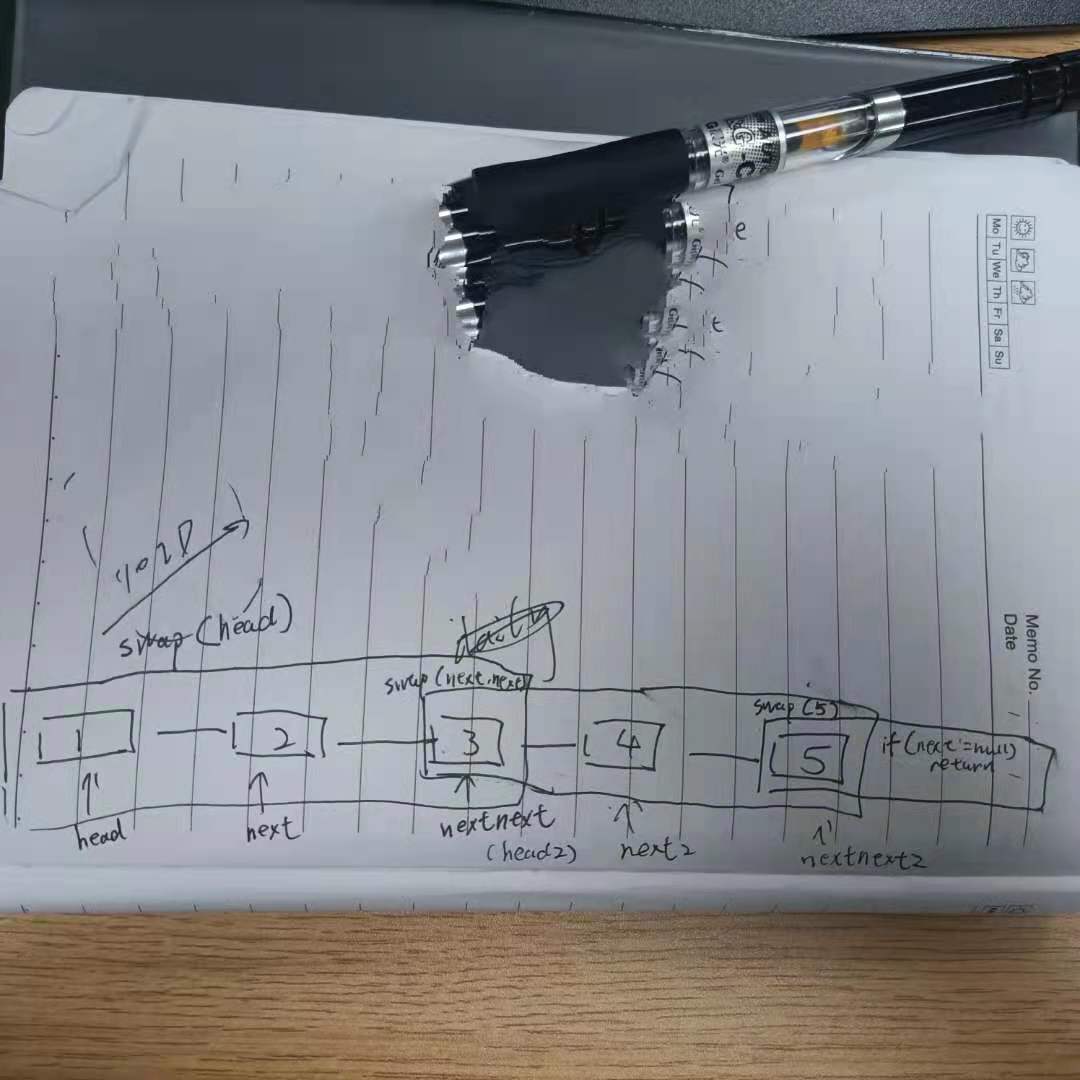 Mo Tu We Th Fr Sa Su
Memo No.
Date
swap(head)
swap(next.next)
swap(5)
1
2
3
4
5
if(next!=null)
return
head
next
nextnext
(head2)
next2
nextnext2